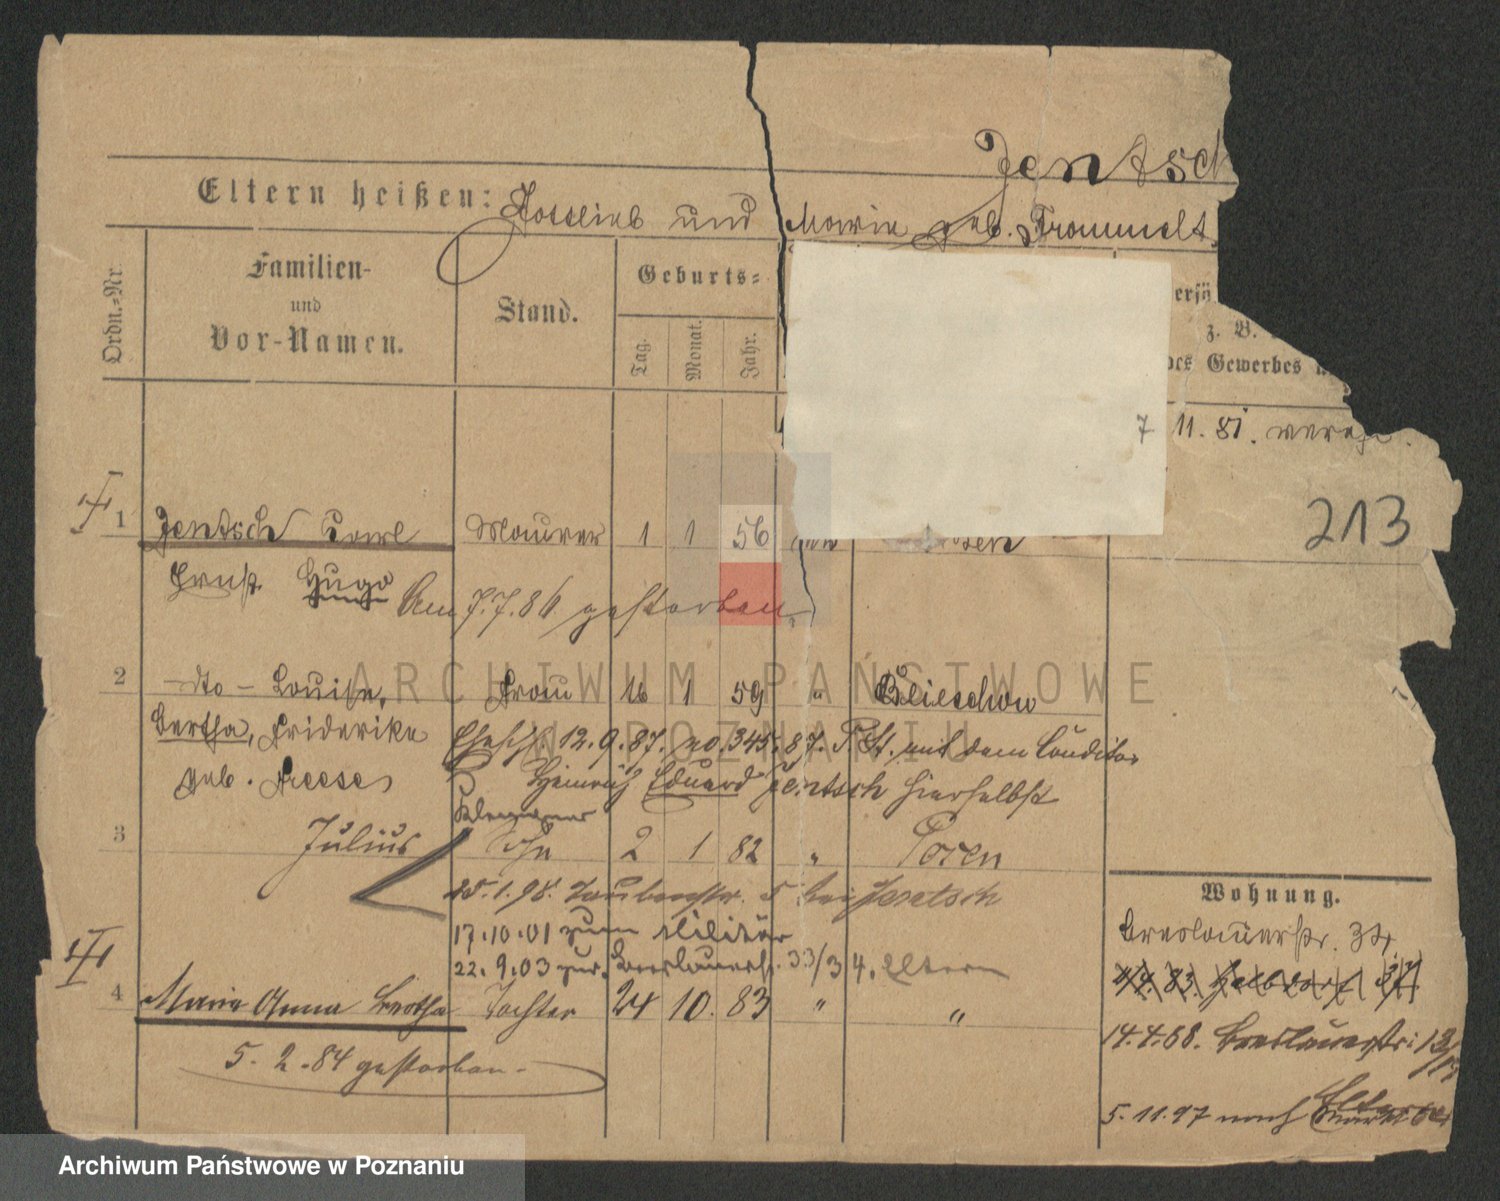 Jentsch
Eltern heißen: Gottlieb und Maria geb. Trommelt.
Ordn.-Nr.
Familien-
und
Vor-Namen.
Stand.
Geburts-
Tag.
Monat.
Jahr.
z. B.
des Gewerbes
7 11. 81.
213
1 Jentsch Carl Maurer 1 1 56
Ernst Hugo Am 7.7.86 gestorben.
2 dto - Louise, Frau 16 1 59 "
Bertha, Friderike 12.9.87. no. 345.87. mit dem Conditor
geb. Freese Heinrich Eduard Jentsch hierselbst
Klempner
3 Julius Sohn 2 1 82 " Posen
25.1.98. Taubenstr. 5 bei Jentsch
17.10.01 zum Militär
22.9.03 zur. Breslauerst. 33/34. Eltern
4 Maria Anna Bertha Tochter 24 10. 83 " "
5. 2. 84 gestorben.
Wohnung.
Breslauerstr. 34.
14.4.88. Breslauerstr:
5.11.97 nach
ARCHIWUM PAŃSTWOWE
W POZNANIU
Archiwum Państwowe w Poznaniu